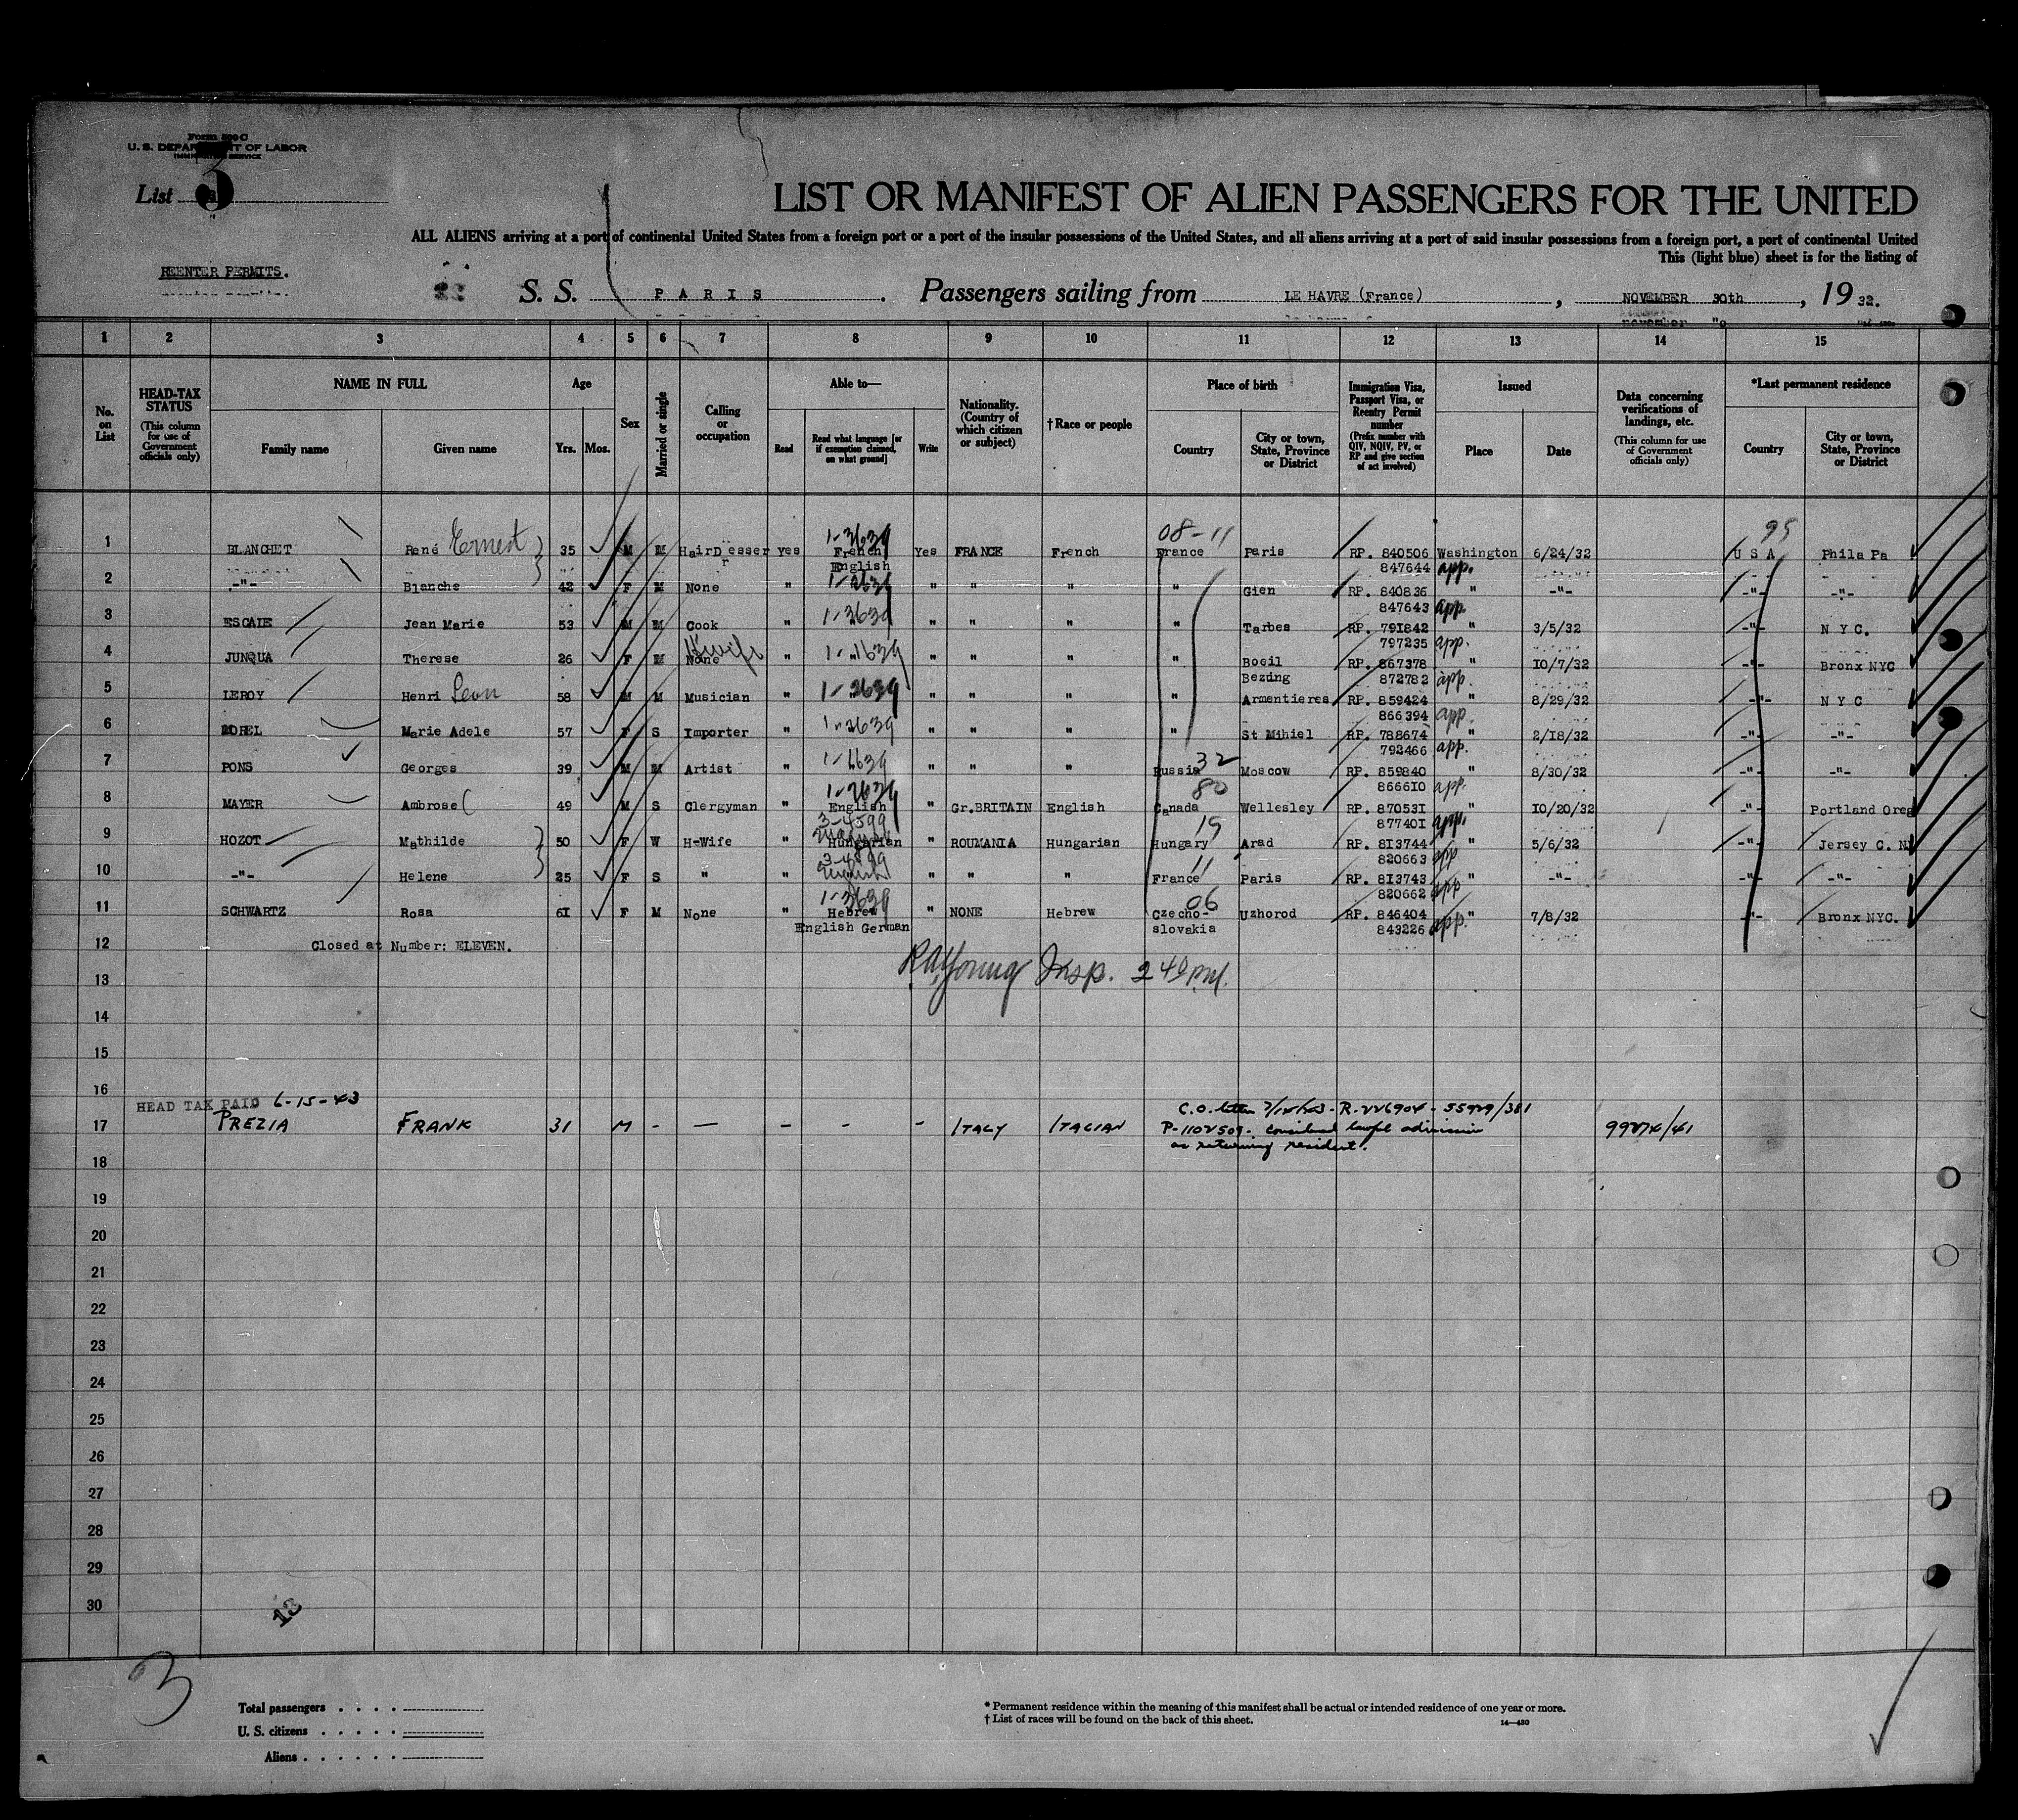 Form 500 C
U. S. DEPARTMENT OF LABOR
IMMIGRATION SERVICE
List 3
LIST OR MANIFEST OF ALIEN PASSENGERS FOR THE UNITED
ALL ALIENS arriving at a port of continental United States from a foreign port or a port of the insular possessions of the United States, and all aliens arriving at a port of said insular possessions from a foreign port, a port of continental United
This (light blue) sheet is for the listing of
REENTER PERMITS.
S. S. PARIS. Passengers sailing from LE HAVRE (France), NOVEMBER 30th, 1932.
1 2 3 4 5 6 7 8 9 10 11 12 13 14 15
No. on List
HEAD-TAX STATUS (This column for use of Government officials only)
NAME IN FULL
Family name Given name
Age
Yrs. Mos.
Sex
Married or single
Calling or occupation
Able to—
Read
Read what language [or if exemption claimed, on what ground]
Write
Nationality. (Country of which citizen or subject)
†Race or people
Place of birth
Country
City or town, State, Province or District
Immigration Visa, Passport Visa, or Reentry Permit number (Prefix number with QIV, NQIV, PV, or RP and give section of act involved)
Issued
Place Date
Data concerning verifications of landings, etc. (This column for use of Government officials only)
*Last permanent residence
Country
City or town, State, Province or District
08-11 95
1-3639
1 BLANCHET René Ernest 35 M M HairDresser yes French Yes FRANCE French France Paris RP. 840506 Washington 6/24/32 U S A Phila Pa
English 847644 app.
2 -"- Blanche 42 F M None " 1-3639 " " " " Gien RP. 840836 " -"- -"- -"-
847643 app.
3 ESCALE Jean Marie 53 M M Cook " 1-3639 " " " " Tarbes RP. 791842 " 3/5/32 -"- N Y C.
H'wife 797235 app.
4 JUNQUA Therese 26 F M None " " " " " Boeil RP. 867378 " 10/7/32 -"- Bronx NYC
Bezing 872782 app.
5 LEROY Henri Leon 58 M M Musician " 1-3639 " " " " Armentieres RP. 859424 " 8/29/32 -"- N Y C
866394 app.
6 MOREL Marie Adele 57 F S Importer " 1-3639 " " " " St Mihiel RP. 788674 " 2/18/32 -"- -"-
792466 app.
32
7 PONS Georges 39 M M Artist " " " " Russia Moscow RP. 859840 " 8/30/32 -"- -"-
1-3639 80 866610 app.
8 MAYER Ambrose 49 M S Clergyman " English " Gr.BRITAIN English Canada Wellesley RP. 870531 " 10/20/32 -"- Portland Oreg
3-4599 19 877401 app.
9 HOZOT Mathilde 50 F W H-Wife " Hungarian " ROUMANIA Hungarian Hungary Arad RP. 813744 " 5/6/32 -"- Jersey C. NJ
3-4599 11 820663 app
10 -"- Helene 25 F S " " English " " " France Paris RP. 813743 " -"- -"- -"-
1-3639 06 820662 app
11 SCHWARTZ Rosa 61 F M None " Hebrew " NONE Hebrew Czecho- Uzhorod RP. 846404 " 7/8/32 -"- Bronx NYC.
English German slovakia 843226 app.
12 Closed at Number: ELEVEN.
R.A. Young Insp. 2 40 P.M.
13
14
15
16
HEAD TAX PAID 6-15-43
C.O. letter
17 PREZIA FRANK 31 M - — - - - ITALY ITALIAN P-1102509- considered lawful admission
as returning resident.
18
19
20
21
22
23
24
25
26
27
28
29
30
13
3
Total passengers
U. S. citizens
Aliens
* Permanent residence within the meaning of this manifest shall be actual or intended residence of one year or more.
† List of races will be found on the back of this sheet.
14—430